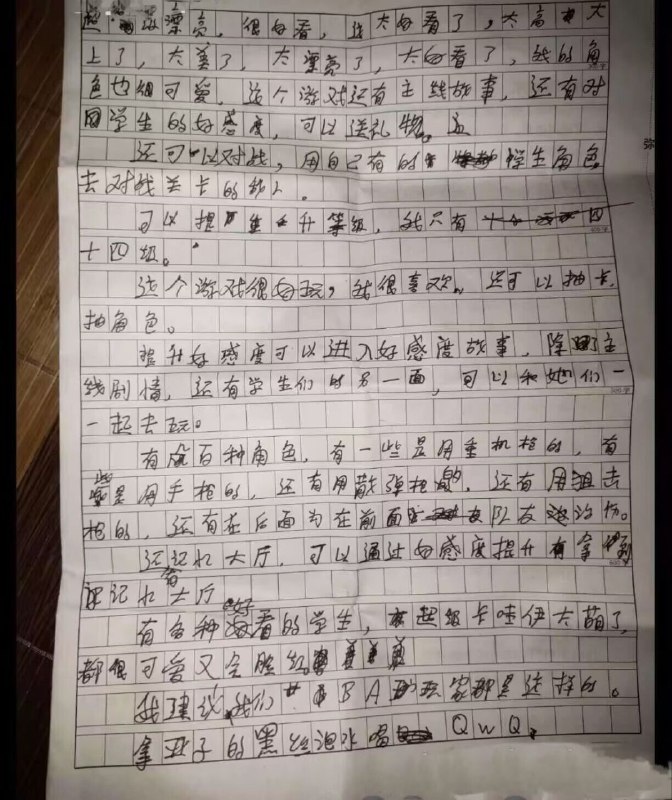 漂亮，很好看，这太好看了，太高大
上了，太美了，太漂亮了，太好看了，我的角
色也细可爱，这个游戏还有主线故事，还有对
同学生的好感度，可以送礼物。
还可以对战，用自己有的学生角色
去对战关卡的敌人。
可以提升等级，我只有四
十四级。
这个游戏很好玩，我很喜欢。还可以抽卡
抽角色。
提升好感度可以进入好感度故事，除了主
线剧情，还有学生们的另一面，可以和她们一
一起去玩。
有成百种角色，有一些是用重机枪的，有
些是用手枪的，还有用散弹枪的，还有用狙击
枪的，还有在后面为在前面队友治疗。
还记忆大厅，可以通过好感度提升有拿到
记忆大厅
有各种好看的学生，超级卡哇伊太萌了，
都很可爱又全腔
我建议我们BA的玩家都是这样的。
拿亚子的黑丝泡水喝QwQ。
400字
500字
600字
弥